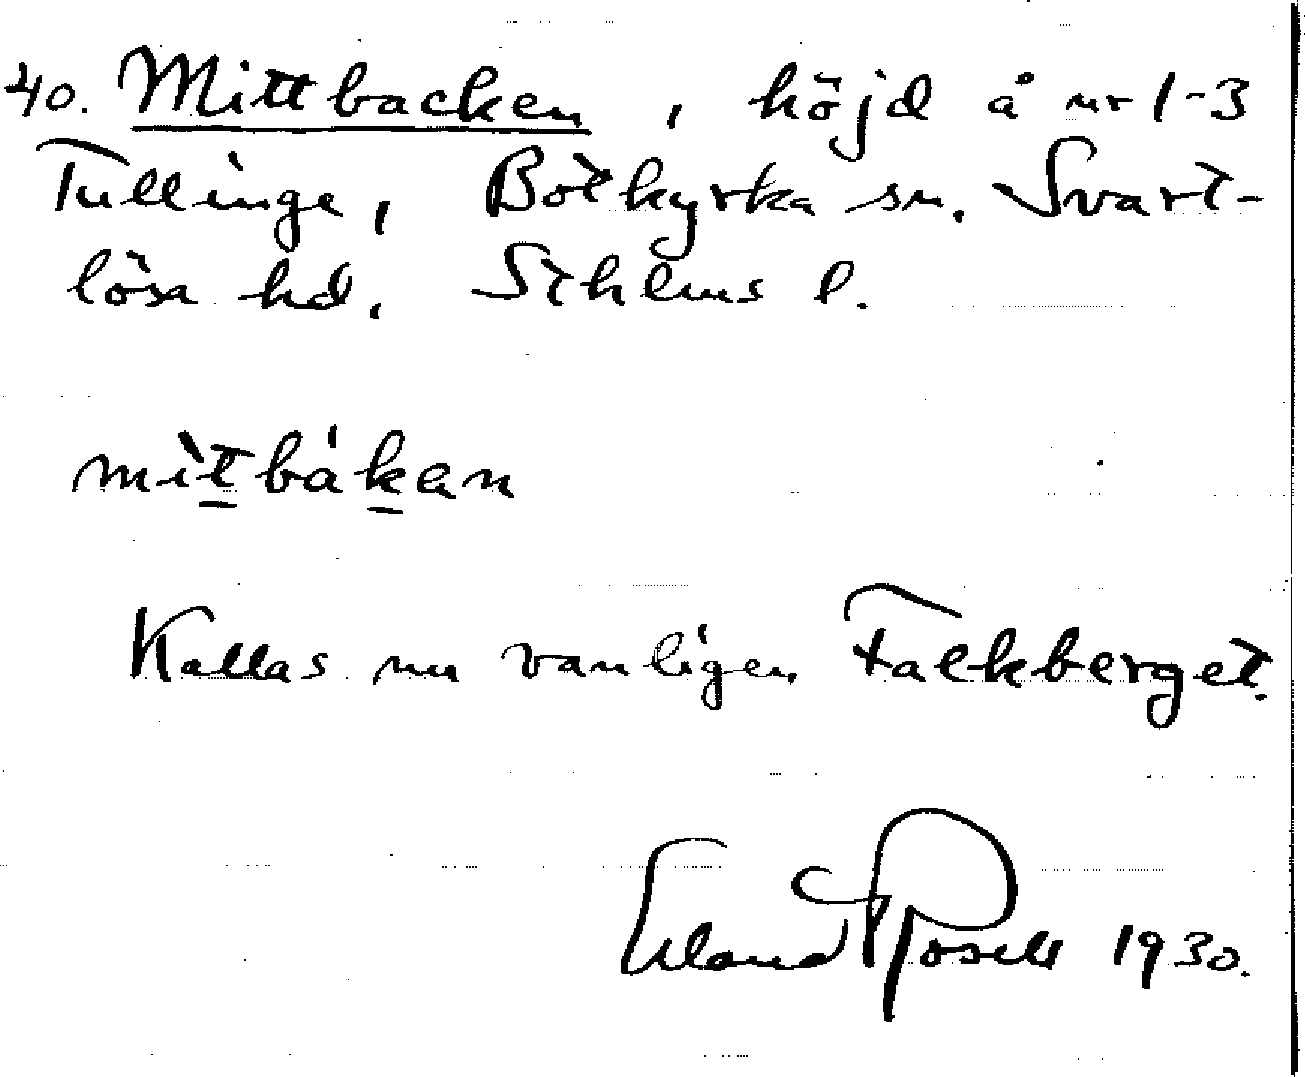 40. Mittbacken, höjd å nr 1-3
Tullinge, Botkyrka sn. Svart-
lösa hd. Sthlms l.
mìtbákan
Kallas nu vanligen Falkberget.
Erland Rosell 1930.